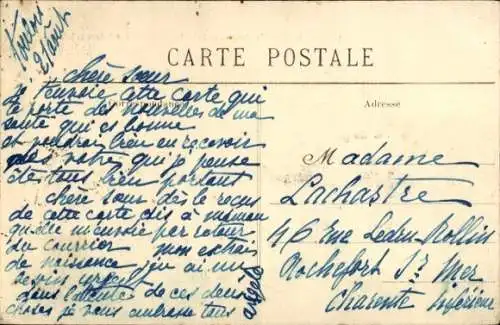 21 août
CARTE POSTALE
Correspondance
Adresse
chère sœur
Je t'envoie cette carte qui
te porte des nouvelles de ma
santé qui es bonne
et voudrais bien en recevoir
des votre qui je pense
êtes tous bien portant
chère sœur dès le reçus
de cette carte dis à maman
qu'elle m'envoie par retour
du courrier mon extrai
de naissance j'ai
besoin urgent
de ces deux
choses je vous embrasse tous
Madame
Lachastre
46 rue Ledru Rollin
Rochefort Sr Mer
Charente Inférieure